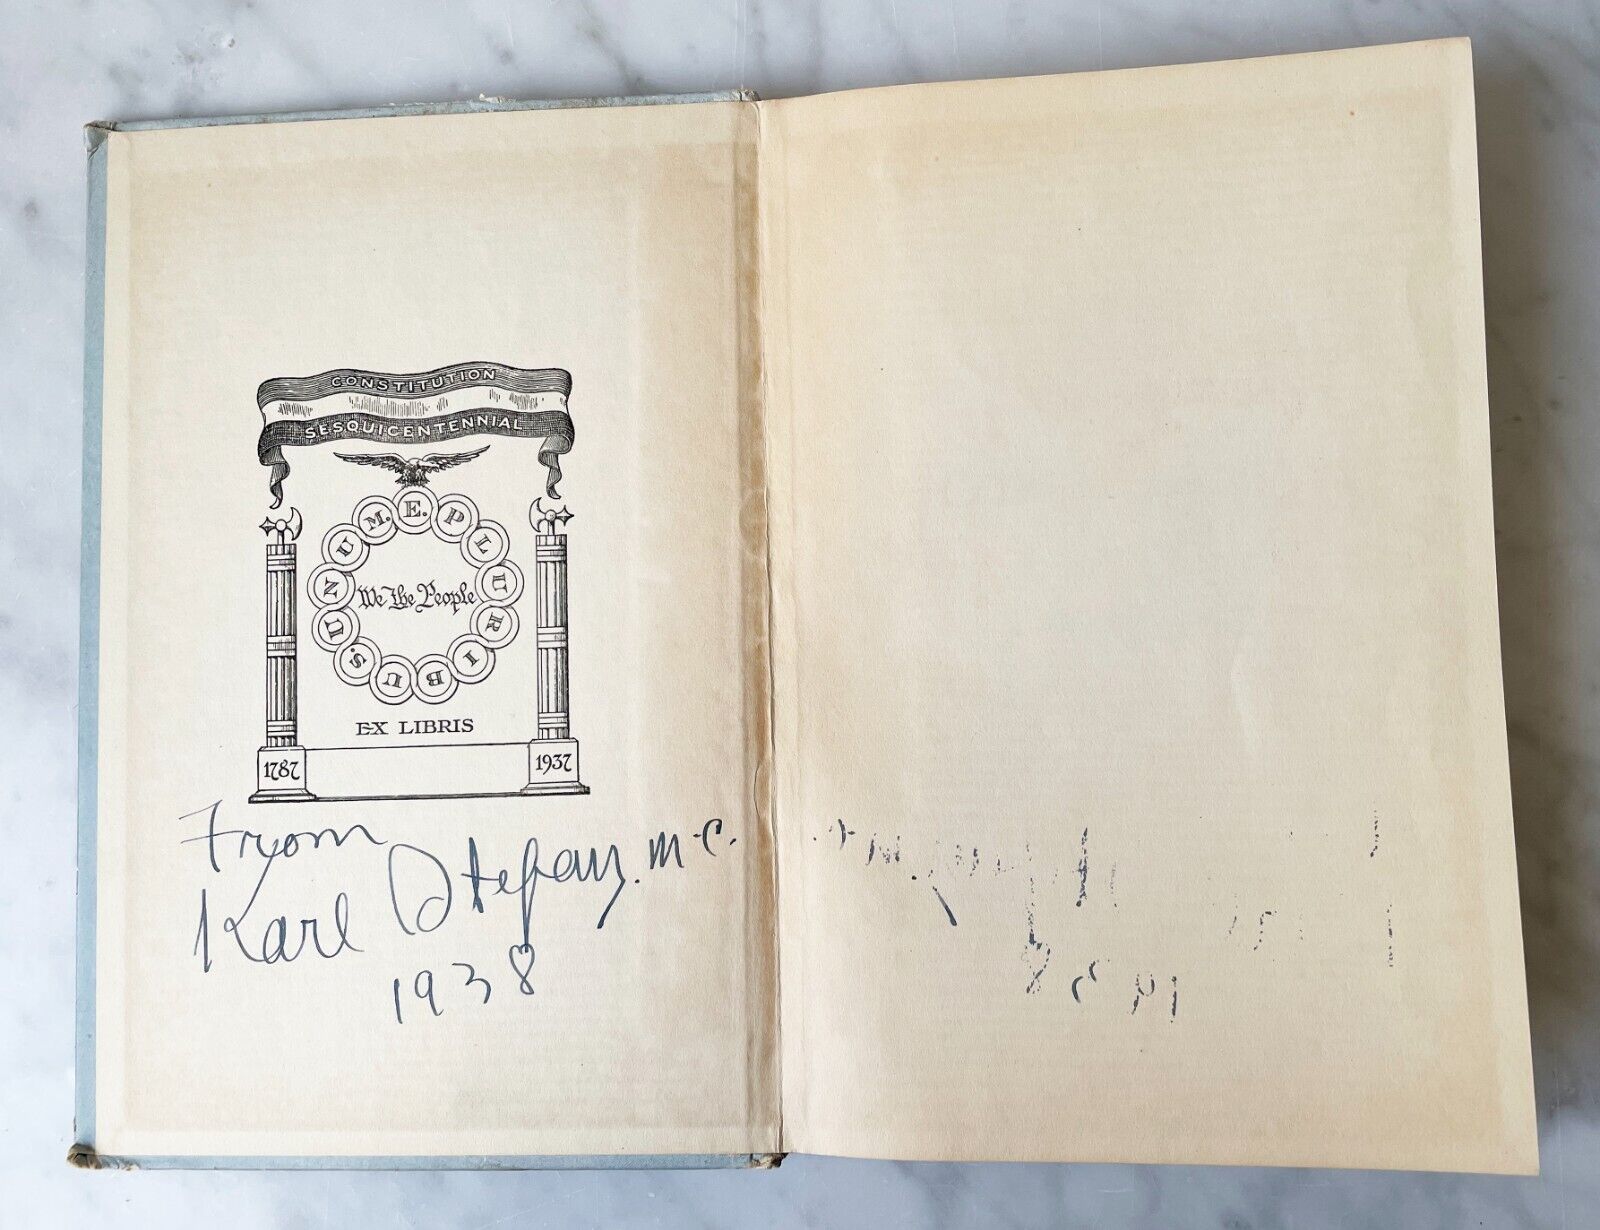 CONSTITUTION
SESQUICENTENNIAL
E. PLURIBUS. UNUM.
We the People
EX LIBRIS
1787 1937
From
Karl Stefan, M.C.
1938